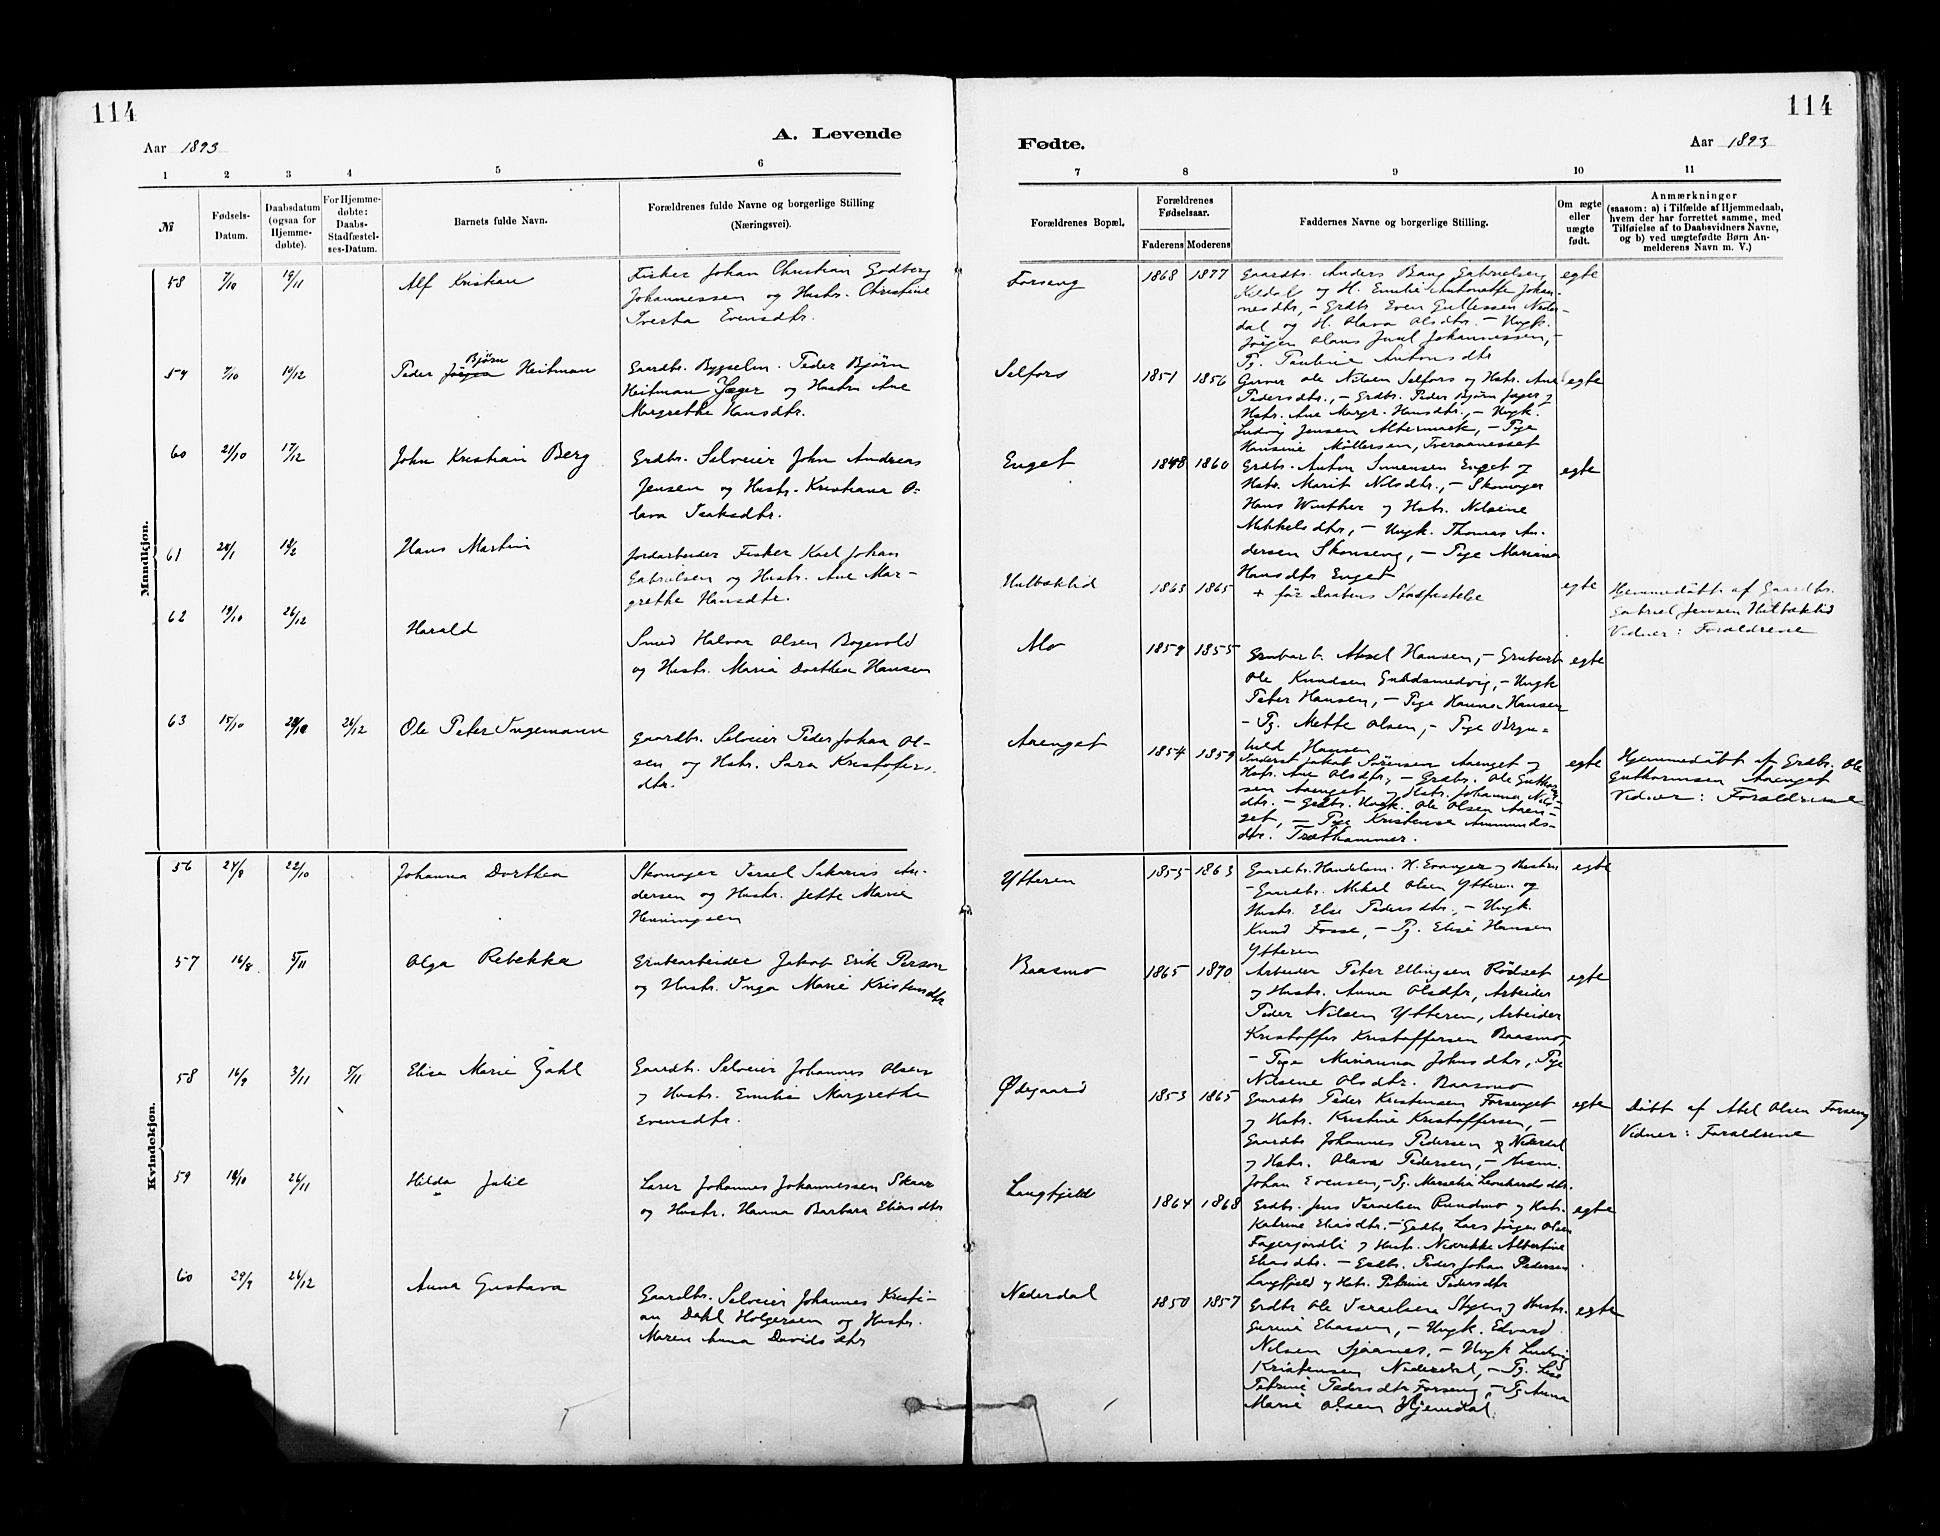 114
Aar 1893
A. Levende
1 2 3 4 5 6
№
Fødsels-
Datum.
Daabsdatum
(ogsaa for
Hjemme-
døbte).
For Hjemme-
døbte:
Daabs-
Stadfæstel-
ses-Datum.
Barnets fulde Navn.
Forældrenes fulde Navne og borgerlige Stilling
(Næringsvei).
Mandkjøn.
58 7/10 19/11 Alf Kristian
Fisker Johan Christian Godberg
Johannessen og Hustr. Christine
Iverta Evensdtr.
59 7/10 10/12 Peder Jørgen Bjørn Heitman
Gaardbr. Bygselm. Peder Bjørn
Heitman Jæger og Hustru Ane
Margrethe Hansdtr.
60 21/10 17/12 John Kristian Berg
Grdbr. Selveier John Andreas
Jensen og Hustr. Kristiana O-
lava Isaksdtr.
61 Hans Martin
Jordarbeider Fisker Karl Johan
Gabrielsen og Hustr. Ane Mar-
grethe Hansdtr.
62 19/10 26/12 Harald
Smed Halvor Olsen Bogevold
og Hustr. Maria Dorthea Hansen
63 15/10 26/12 Ole Peter Ingemann
Gaardbr. Selveier Peder Johan Ol-
sen og Hstr. Sara Kristofers-
dtr.
Kvindekjøn.
56 24/8 22/10 Johanna Dorthea
Skomager Israel Sakarias An-
dersen og Hustr. Jette Marie
Henningsen
57 16/8 5/11 Olga Rebekka
Grubearbeider Jakob Erik Person
og Hustr. Inga Marie Kristensdtr
58 16/9 3/11 5/11 Elise Marie Dahl
Gaardbr. Selveier Johannes Olsen
og Hustr. Emilie Margrethe
Evensdtr.
59 10/10 26/11 Hilda Julie
Lærer Johannes Johannessen Skaar
og Hustr. Hanna Barbara Eliasdtr
60 29/9 26/12 Anna Gustava
Gaardbr. Selveier Johannes Kristi-
an Dahl Holgersen og Hustr.
Maren Anna Davidsdtr
114
Fødte.
Aar 1893
7 8 9 10 11
Forældrenes Bopæl.
Forældrenes
Fødselsaar.
Faderens Moderens
Faddernes Navne og borgerlige Stilling.
Om ægte
eller
uægte
født.
Anmærkninger
(saasom: a) i Tilfælde af Hjemmedaab,
hvem der har forrettet samme, med
Tilføielse af to Daabsvidners Navne,
og b) ved uægtefødte Børn An-
melderens Navn m. V.)
Forseng 1868 1877 Gaardbr. Anders Bang Gabrielsen egte
Kildal og H. Emilie Antonette Johan-
nesdtr, – Grdbr Even Gullessen Neder-
dal og H. Olava Olsdtr. – Ungk.
Jörgen Olaus Juul Johannessen, –
Pg. Pauline Antonsdtr
Selfors 1851 1856 Garver Ole Nilsen Selfors og Hstr. Ane egte
Pedersdtr., – Grdbr. Peder Bjørn Jæger og
Hstr. Ane Margr. Hansdtr., – Ungk.
Ludvig Jensen Altermark, – Pige
Hansine Möllersen, Tveraanesset
Enget 1848 1860 Grdbr. Anton Simensen Enget og egte
Hstr. Marit Nilsdtr., – Skomager
Hans Winther og Hstr. Nilsine
Mikkelsdtr, – Ungk. Thomas An-
dersen Skonseng, – Pige Mariane
Hansdtr Enget
Hilbæklid 1863 1865 + før Daabens Stadfæstelse egte
Hjemmedöbt af Gaardbr.
Gabriel Jensen Hilbæklid
Vidner: Forældrene
Mo 1859 1855 Grubearb. Aksel Hansen, – Grubearb egte
Ole Knudsen Guldsmedvig, – Ungk
Peter Hansen, – Pige Hanna Hansen
– Pg. Mette Olsen, – Pige Bryn-
hild Hansen
Aaenget 1854 1859 Inderst Jakob Sörensen Aaenget og egte
Hstr. Ane Olsdtr, – Grdbr. Ole Guttorm-
sen Aaenget og Hstr. Johanna Nils-
dtr. – Grdbr. Ungk. Ole Olsen Aaen-
get, – Pige Kristense Ammunds-
dtr. Træthammer.
Hjemmedöbt af Grdbr. Ole
Guthormsen Aaenget
Vidner: Forældrene
Ytteren 1855 1863 Gaardbr. Handelsm. H. Evanger og Hustru egte
– Gaardbr. Mikal Olsen Ytteren og
Hustr. Else Pedersdtr, – Ungk.
Knud Fosse, – Pg. Elise Hansen
Ytteren
Baasmo 1865 1870 Arbeider Peter Ellingsen Rödset egte
og Hustr. Anna Olsdtr, Arbeider
Peder Nilsen Ytteren, Arbeider
Kristoffer Kristoffersen Baasmo,
– Pige Marianna Johnsdtr, Pige
Nilsine Olsdtr. Baasmo
Ødegaard 1853 1865 Gaardbr Peder Kristensen Forsenget egte
og Hstr. Kristine Kristoffersen, –
Gaardbr Johannes Pedersen Nederdal
og Hstr. Olava Pedersen, –
Johan Evensen, – Pg. Marselia Leonhardsdtr.
Döbt af Abel Olsen Forseng
Vidner: Forældrene
Langfjeld 1864 1868 Grdbr. Jens Israelsen Rundmo og Hstr. egte
Katrine Eliasdtr. – Grdbr Lars Jörgen Olsen
Fagerjordli og Hustr. Nedrikke Albertine
Eliasdtr. – Grdbr. Peder Johan Pedersen
Langfjeld og Hstr. Petrine Pedersdtr
Nederdal 1850 1857 Grdbr Ole Israelsen og Hustr. egte
Gurine Eliassen, – Ungk. Edvard
Nilsen Sjaanes, – Ungk Ludvig
Kristensen Nederdal, – Pg. Lise
Petrine Pedersdtr Forseng, – Pg Anna
Marie Olsen Hjemdal.